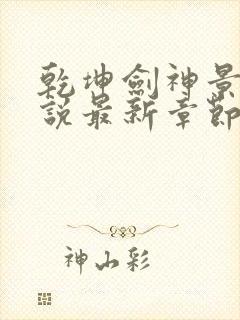 乾坤劍神景
說最新章節
神山彩